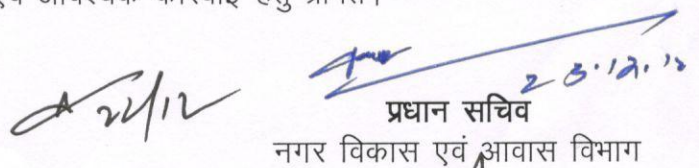 एवं आवश्यक कार्रवाई हेतु प्रेषित।
22/12
23.12.12
प्रधान सचिव
नगर विकास एवं आवास विभाग